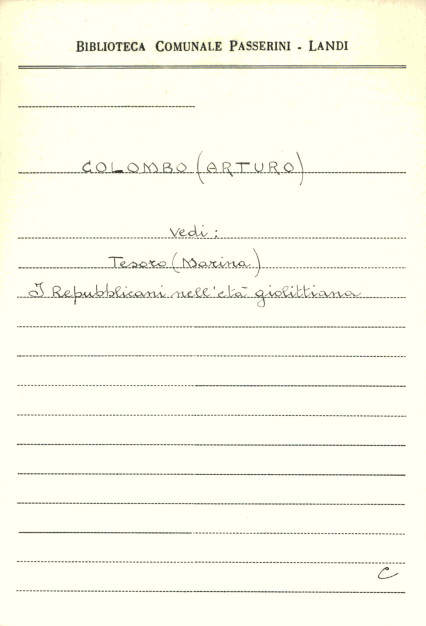 BIBLIOTECA COMUNALE PASSERINI - LANDI
COLOMBO (ARTURO)
Vedi:
Tesoro (Marina)
I Repubblicani nell'età giolittiana
C